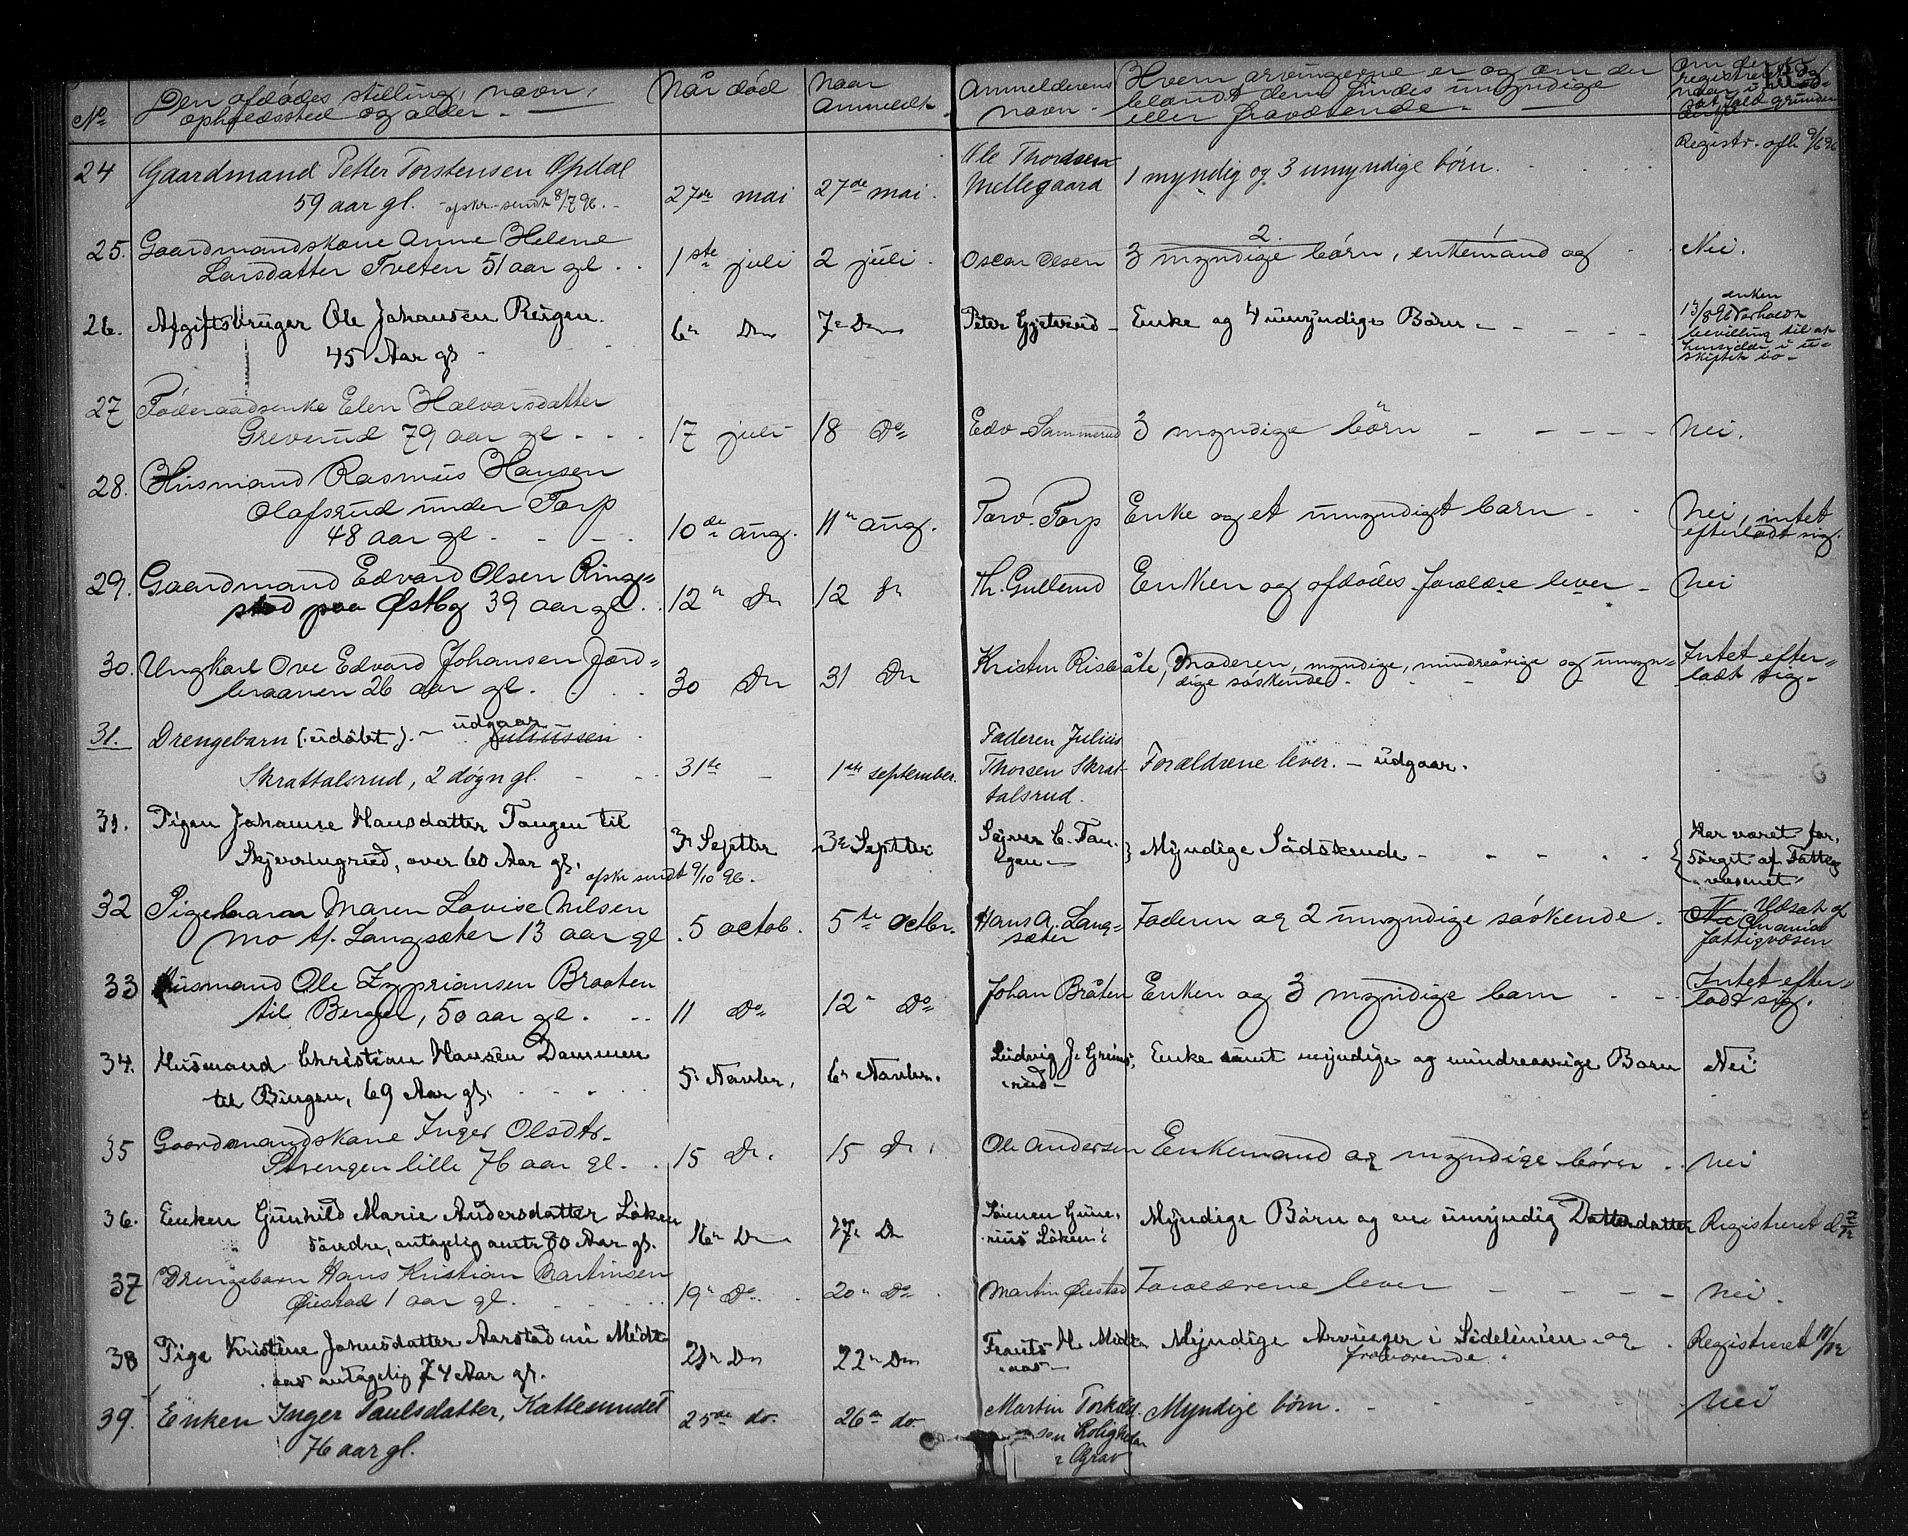 No. Den afdödes stilling, navn, opholdssted og alder. Når död Naar Anmeldt Anmelderens navn. Hvem arvingerne er og om der blandt dem findes umyndige eller fraværende. Om der er registreret og naar i modsat fald grunden
24 Gaardmand Petter Torstensen Opdal 27de mai 27de mai. Ole Thordsen Mellegaard 1 myndig og 3 umyndige börn. Registr. afh. 9/6 96
59 aar gl. opskr. sendt 8/7 96.
25. Gaardmandskone Anne Helene 1ste juli 2 juli. Oscar Olsen 3 myndige börn, enkemand og 2. Nei.
Larsdatter Tveten 51 aar gl.
26. Afgiftsbruger Ole Johansen Reigen. 6te Do 7de Do Peter Gjeterud Enke og 4 umyndige Börn. enken 13/8 96 erholdt bevilling til at hensidde i uskiftet bo
45 Aar gl.
27 Föderaadsenke Elen Halvorsdatter 17 juli 18 Do Edv Sammerud 3 myndige börn Nei.
Greverud 79 aar gl.
28. Husmand Rasmus Hansen
Olafsrud under Torp 10de aug. 11te aug. Torv. Torp Enke og et umyndigt barn Nei, intet efterladt sig.
48 aar gl.
29. Gaardmand Edvard Olsen Ring= 12te Do 12 Do Th. Gullerud Enken og afdödes forældre lever Nei
stad paa Østby 39 aar gl.
30. Ungkarl Ove Edvard Johansen Jord= 30 Do 31 Do Kristen Risbråte, Moderen, myndige, mindreårige og umyn= Intet efter=
braanen 26 aar gl. dige söskende. ladt sig.
31. Drengebarn (udöbt). udgaar Juliussen 31te 1ste september. Faderen Julius Thorsen Skrattalsrud. Forældrene lever. udgaar.
Skrattalsrud, 2 dögn gl.
31. Pigen Johanne Hansdatter Tangen til 3de Septbr 3de Septbr Sejver C. Tangen Myndige Södskende Har været forsörget af Fattigvæsenet
Skjerringrud, over 60 Aar gl. opskr sendt 9/10 96.
32 Pigebarn Maren Lovise Nilsen 5 octob. 5te Octbr. Hans A. Langsæter Faderen og 2 umyndige söskende. Nei Udsat af Chrania fattigvæsen
Mo tf. Langsæter 13 aar gl
33 Husmand Ole Zypriansen Braaten 11 Do 12te Do Johan Bråten Enken og 3 myndige barn Intet efter=
til Berget, 50 aar gl. ladt sig.
34. Husmand Christian Hansen Dammen 5te Novbr. 6te Novbr. Ludvig J. Grimsrud Enke samt myndige og mindreaarige Børn Nei
til Bingen, 69 Aar gl.
35 Gaardmandskone Inger Olsdtr. 15 Do. 15 Do. Ole Andersen Enkemand og myndige börn Nei
Strengen lille 76 aar gl.
36. Enken Gunhild Marie Andersdatter Löken 16te Do 17de Do Simen Gunerius Löken Myndige Börn og en umyndig Datterdatter Registreret d 2/12
söndre, antagelig omtr 80 Aar gl.
37 Drengebarn Hans Kristian Martinsen 19te Do. 20te Do. Martin Øiestad Foreldrene lever Nei.
Øiestad 1 aar gl.
38 Pige Kristine Johnsdatter Aarstad ni Midt 21de Do 22de Do Frants H. Midtaas Myndige Arvinger i Sidelinien og Registreret 11/12
aas antagelig 74 Aar gl. fraværende.
39. Enken Inger Paulsdatter, Kattesundet 25de do. 26de do. Martin Torkelsen Roligheden Myndige börn. Nei
76 aar gl.